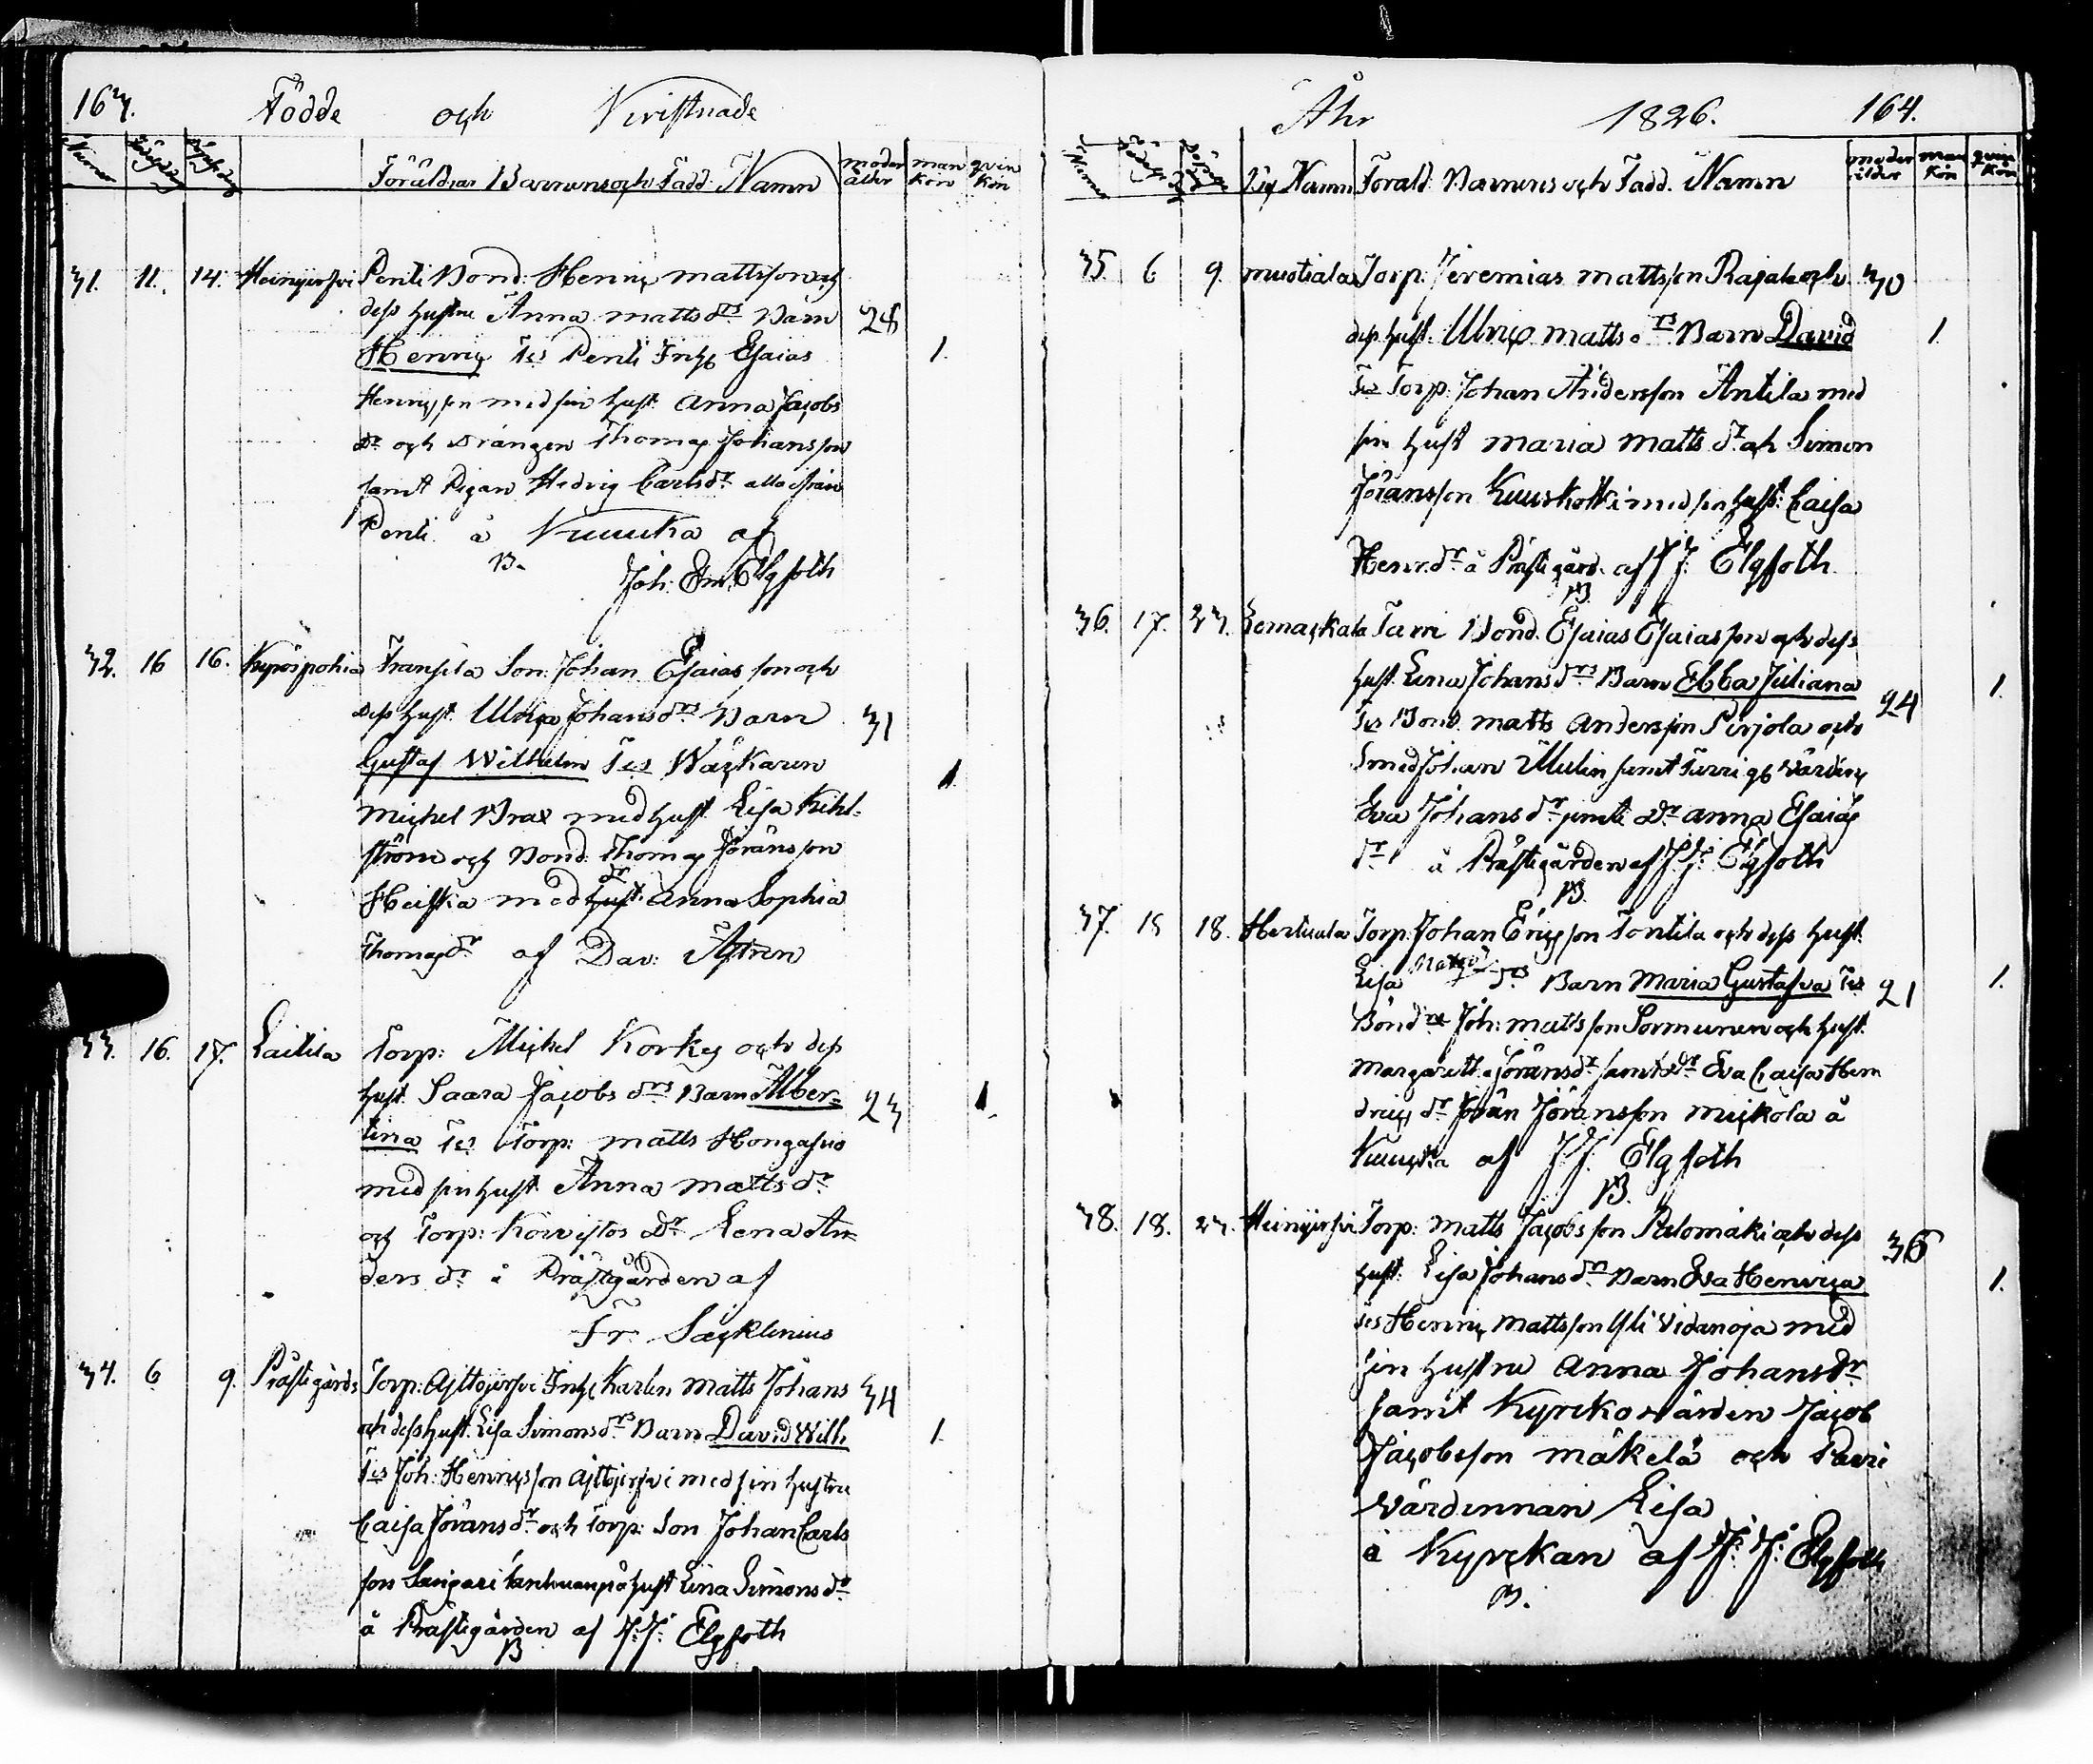 163.
Födde och Kristnade
Numer
Föräldrar Barnens och Fadd: Namn
moder ålder
man kön
qvin kön
31. 11. 14. Heinijerfvi Penti Bond: Henric mattsson och
dess hustru Anna matts drs Barn 28
Henric Tes Penti Inhs Esaias 1.
Henricsson med sin hust. Anna Jacobs
dr och drängen Thomas Johansson
samt Pigan Hedvig Carls dr alla ifrån
Penti å Kuuuka af
B.
Joh: Em. Elgfoth
32. 16 16. Kyröspohia Fransila Son: Johan Esaiasson och
dess hust. Ulrica Johans drs Barn 31
Gustaf Wilhelm Tes Wäckaren 1.
Michel Brax med hust. Lisa Kihl-
ström och Bond: Thomas Göransson
Heiska med hust. dr Anna Sophia
Thomas dr af Dav: Åstren
33. 16. 17. Laitila Torp: Michel Korkes och dess
hust. Saara Jacobs drs Barn Alber- 23 1
tina Tes Torp: matts Hongasuo
med sin hust. Anna matts dr
och Torp: Koivistos dr Lena An
ders dr å Prästgården af
Fr. Sacklenius
34. 6 9. Prästegårds Torp: Inhs Karlen Matts Johans 34
och dess hust. Lisa Simons drs Barn David Wilh 1.
Tes Joh: Henricsson med sin hustru
Caisa Görans dr och Torp: Son Johan Carls
son hust Lina Simons dr
å Prästegården af J:J: Elgfoth
B
Åhr 1826. 164.
Numer
By Namn Foräld: Barnens och Fadd. Namn
moder ålder
man kön
qvin kön
35. 6 9. muotiala Torp: Jeremias mattsson Rajala och 30
dess hust. Ulrica matts drs Barn David 1
Tes Torp: Johan Andersson Antila med
sin hust maria matts dr och Simon
Göransson Kuuskoski med sin hust: Caisa
Henr. dr å Prästegård. af J J: Elgfoth.
B.
36. 17. 23. Lemackala Tarri Bond. Esaias Esaiasson och dess
hust. Lena Johans drs Barn Ebba Juliana 24 1.
Tes Bond. matts Andersson Pirjola och
Smed Johan Mulin samt Tarri gb värdin
Eva Johans dr jemte dr anna Esaias
dr å Prästegården af J:J: Elgfoth
B.
37. 18 18. Hertuala Torp: Johan Ericsson Tontila och dess hust.
Lisa drs Barn Maria Gustafva Tes 21 1.
Bond Joh: mattsson Sormunen och hust.
Margareta Görans dr samt dr Eva Caisa Hen
drics dr Jöran Jöransson mickola å
af J:J: Elgfoth
B.
38. 18. 23. Heinijerfvi Torp: Matts Jacobsson Palomäki och dess 36
hust: Lisa Johans drs Barn Eva Henrica 1.
Tes Henric Mattsson Yli Vidanoja med
sin hustru Anna Johans dr
samt Kyrckovärden Jacob
Jacobsson mäkelä och Pavri
värdinnan Lisa
å Kyrckan af J: J: Elgfoth
B.